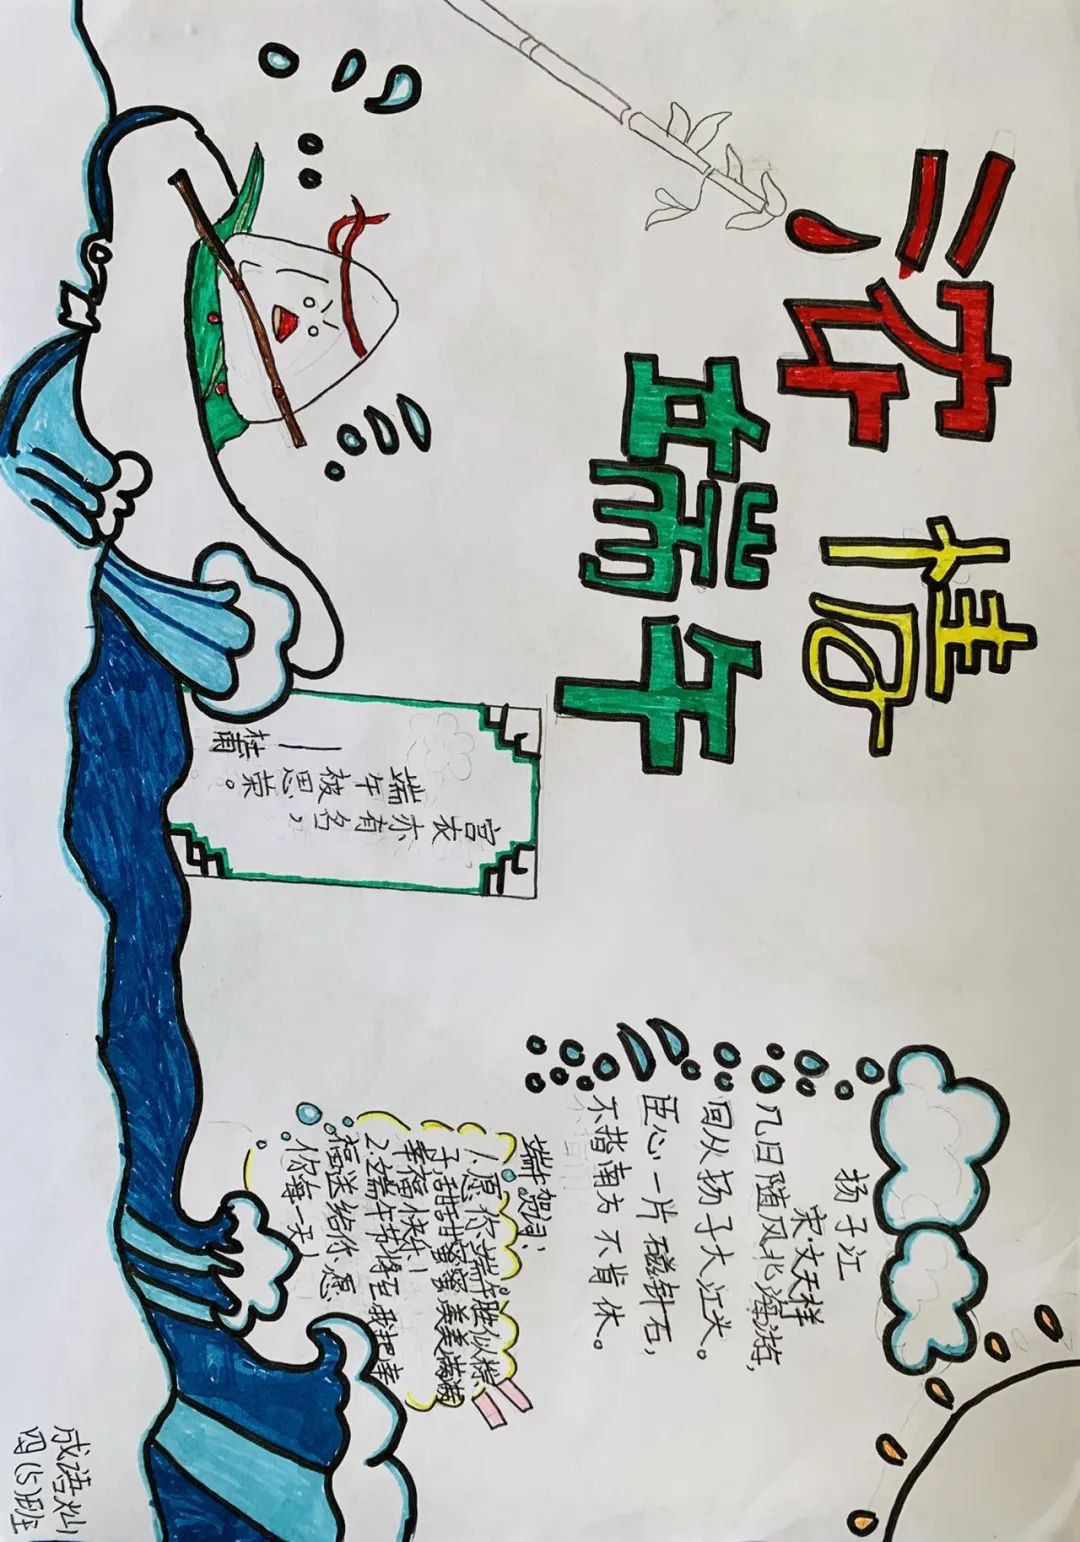 浓情
端午
宫衣亦有名,
端午被思荣。
——杜甫
扬子江
宋.文天样
几日随风北海游,
回从扬子大江头。
臣心一片磁针石,
不指南方不肯休。
端午贺词:
1.愿你端午胜似粽
子:甜甜蜜蜜美美满满
幸福快乐!
2.端午节将至我把幸
福送给你,愿
你每一天!
成语灿
四(5)班